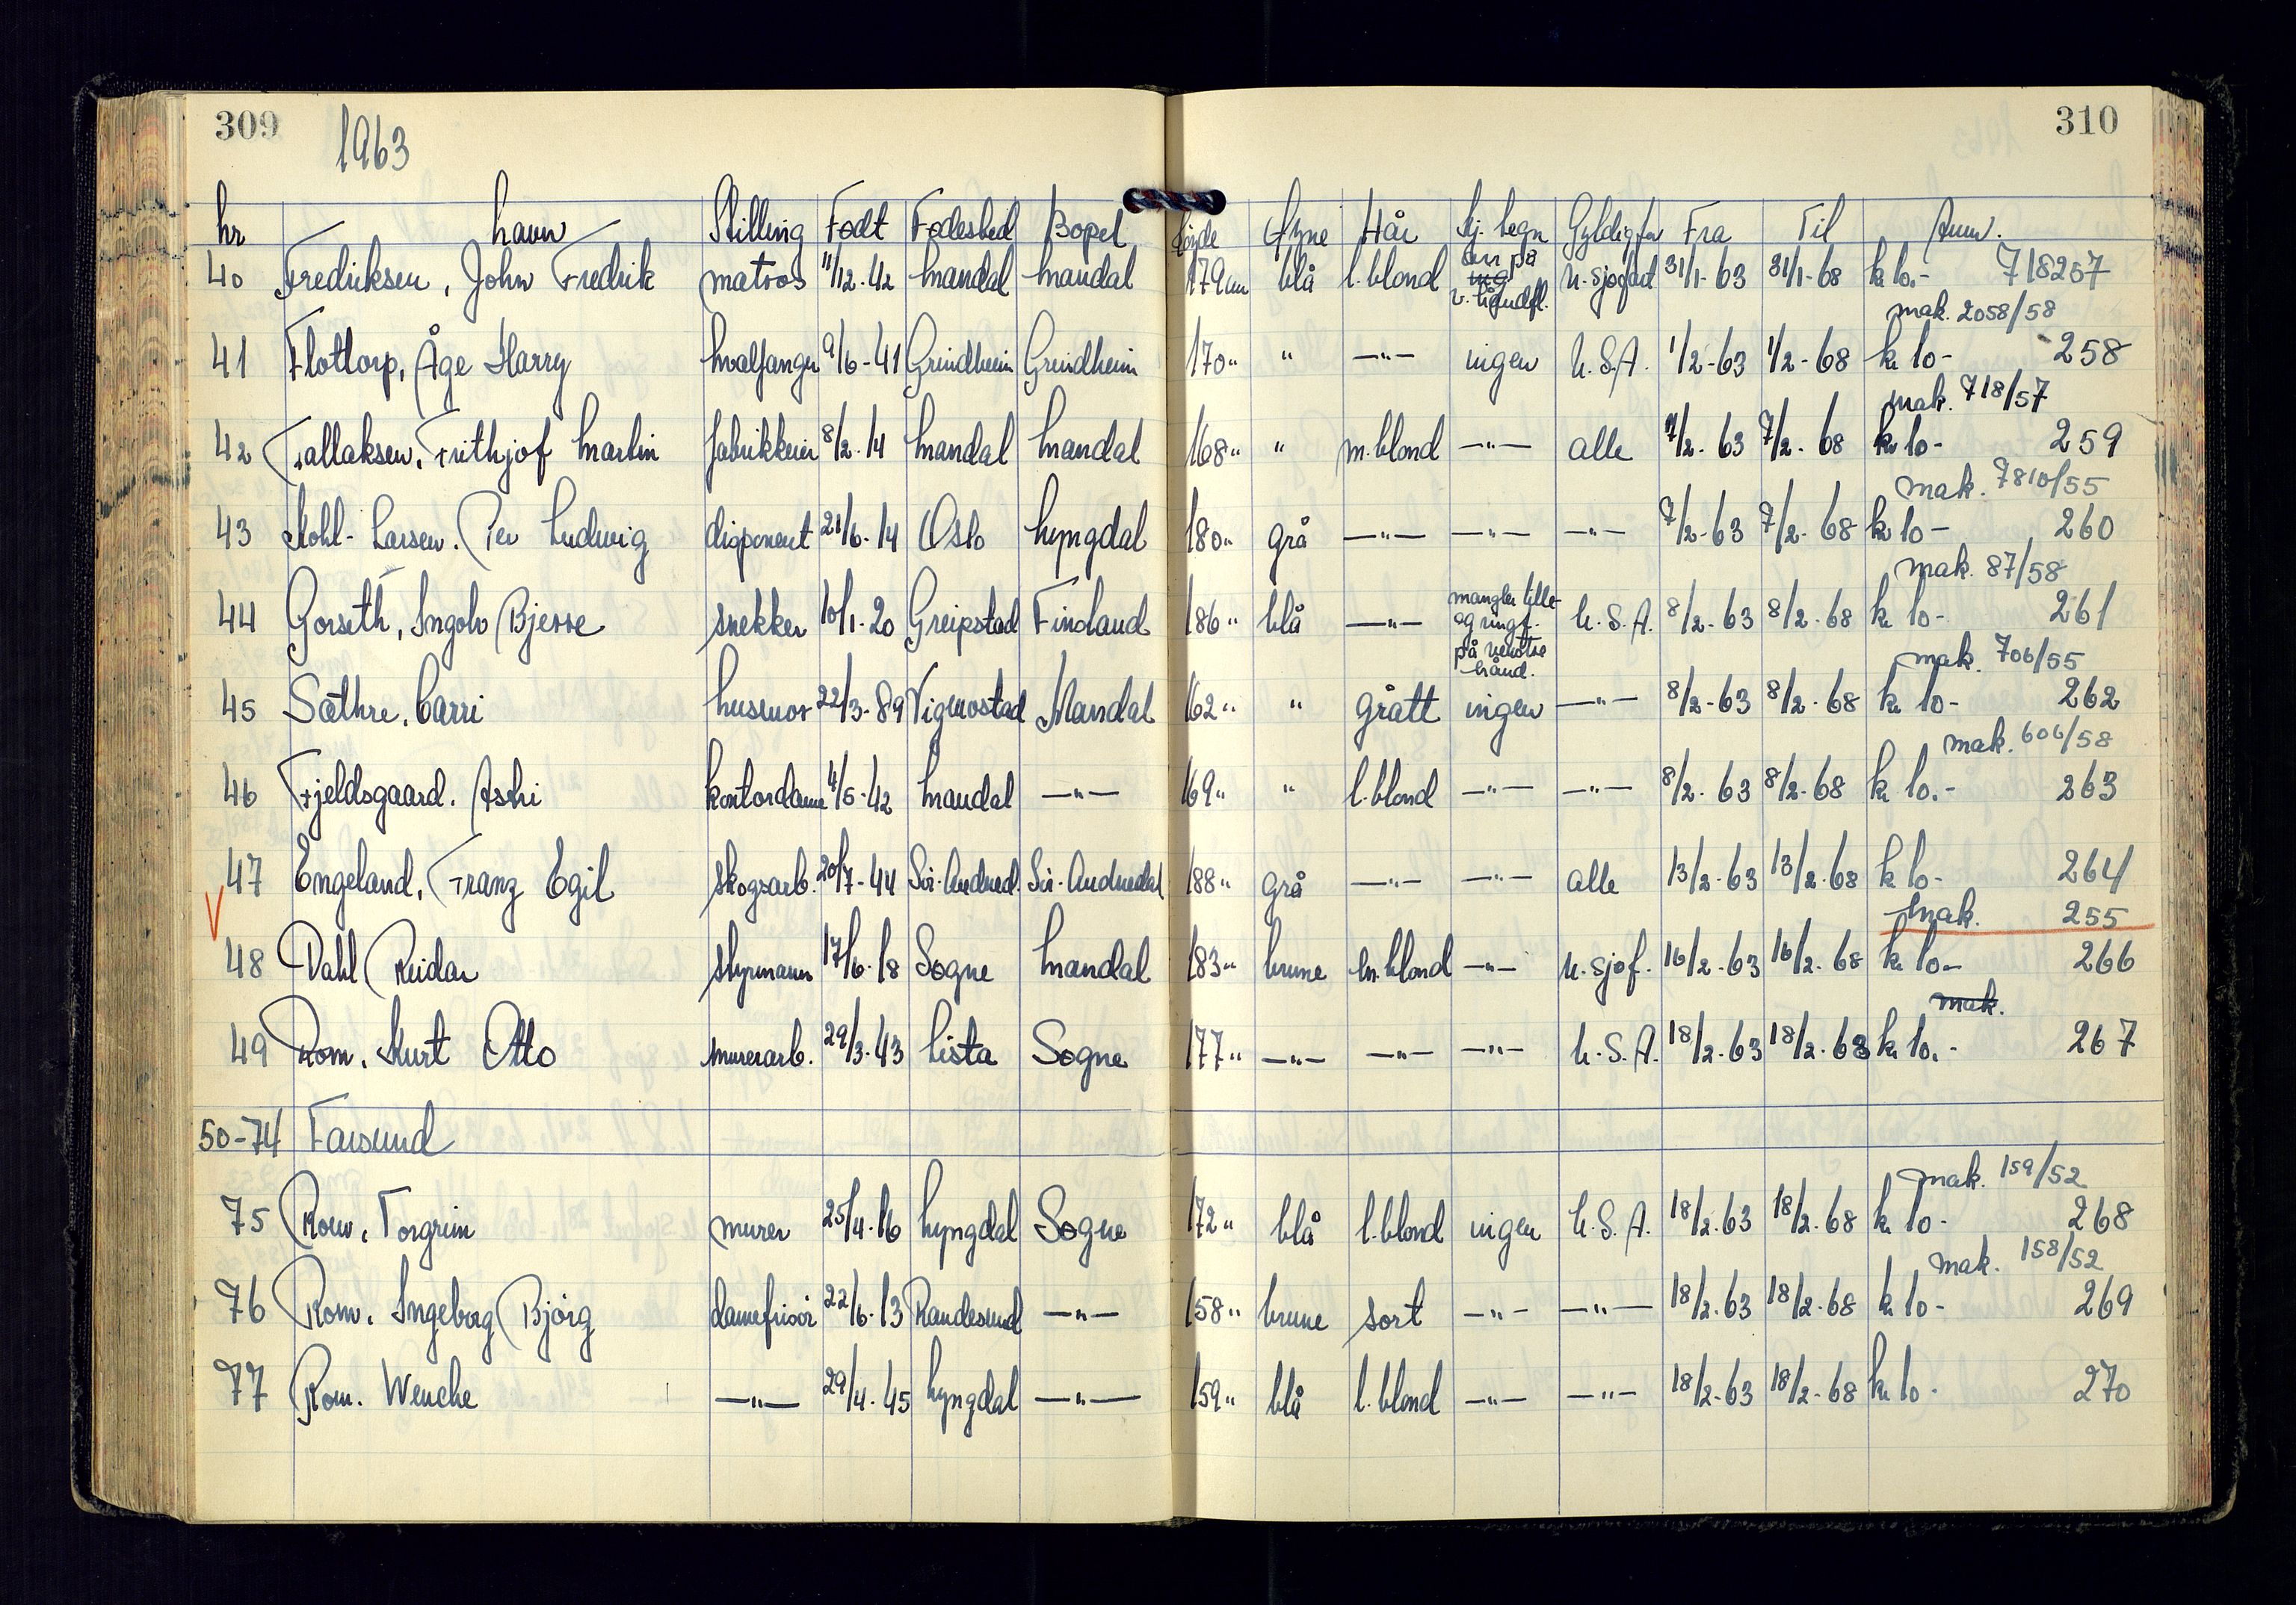 309
310
1963
Nr Navn Stilling Født Fødested Bopel Høyde Øyne Hår Kj. tegn Gyldig for Fra Til Anm.
40 Fredriksen, John Fredrik matros 11/12-42 Mandal Mandal 179 cm blå l. blond arr på v. håndfl. u. sjøfart 31/1-63 31/1-68 kr 10.- 718257
mak. 2058/58
41 Flottorp, Åge Harry hvalfanger 9/6-41 Grindheim Grindheim 170 " " —"— ingen U.S.A. 1/2-63 1/2-68 kr 10- 258
mak. 718/57
42 Tallaksen, Frithjof Martin fabrikkeier 8/2-14 Mandal Mandal 168 " " m. blond —"— alle 7/2-63 7/2-68 kr 10- 259
mak. 7810/55
43 Kohl-Larsen, Per Ludwig disponent 21/6-14 Oslo Lyngdal 180 " grå —"— —"— —"— 7/2-63 7/2-68 kr 10- 260
mak. 87/58
44 Gorseth, Ingolv Bjerre snekker 10/1-20 Greipstad Finsland 186 " blå —"— mangler lille- og ringf. på venstre hånd. U.S.A. 8/2-63 8/2-68 kr 10- 261
mak. 706/55
45 Sæthre, Carri husmor 22/3-89 Vigmostad Mandal 162 " " grått ingen —"— 8/2-63 8/2-68 kr 10- 262
mak. 606/58
46 Fjeldsgaard, Astri kontordame 4/5-42 Mandal —"— 169 " " l. blond —"— —"— 8/2-63 8/2-68 kr 10.- 263
47 Engeland, Franz Egil skogsarb. 20/7-44 Sør-Audned. Sør-Audnedal 188 " grå —"— —"— alle 13/2-63 13/2-68 kr 10- 264
mak. 255
48 Dahl Reidar styrmann 17/6-18 Søgne Mandal 183 " brune m. blond —"— u. sjøf. 16/2-63 16/2-68 kr 10- 266
mak.
49 Rom, Kurt Otto murerarb. 29/3-43 Lista Søgne 177 " —"— —"— —"— U.S.A. 18/2-63 18/2-68 kr 10.- 267
50-74 Farsund
mak. 159/52
75 Rom, Torgrim murer 25/4-16 Lyngdal Søgne 172 " blå l. blond ingen U.S.A. 18/2-63 18/2-68 kr 10- 268
mak. 158/52
76 Rom, Ingeborg Bjørg damefrisør 22/6-13 Randesund —"— 158 " brune sort —"— —"— 18/2-63 18/2-68 kr 10- 269
77 Rom, Wenche —"— 29/4-45 Lyngdal —"— 159 " blå l. blond —"— —"— 18/2-63 18/2-68 kr 10- 270